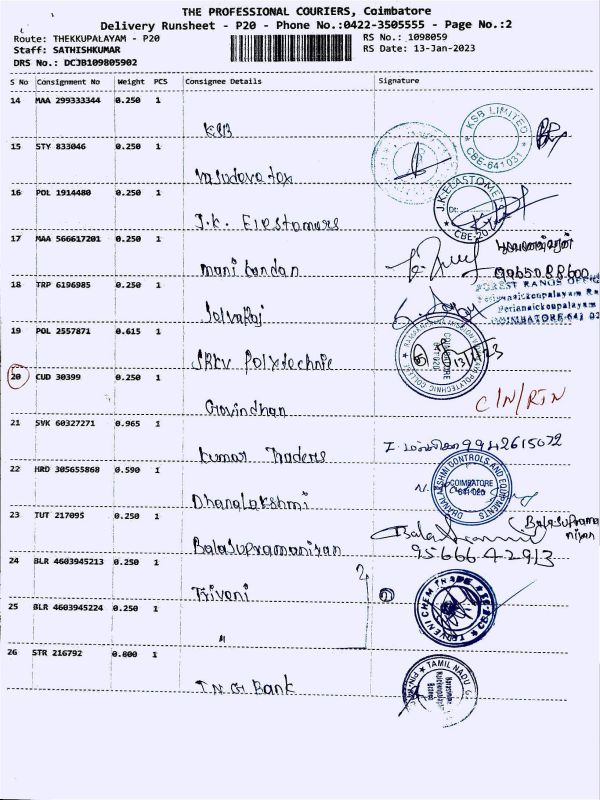 THE PROFESSIONAL COURIERS, Coimbatore
Delivery Runsheet - P20 - Phone No.:0422-3505555 - Page No.:2
Route: THEKKUPALAYAM - P20
RS No.: 1098059
Staff: SATHISHKUMAR
RS Date: 13-Jan-2023
DRS No.: DCJB109805902
S No Consignment No Weight PCS Consignee Details Signature
14 MAA 299333344 0.250 1
KSB
KSB LIMITED CBE-641031
15 STY 833046 0.250 1
Vasudava tex
16 POL 1914480 0.250 1
J.K. Elastomers
J.K.ELASTOMERS CBE-20
17 MAA 566617201 0.250 1
Mani kandan
9965088600
18 TRP 6196985 0.250 1
Selvaraj
FOREST RANGE OFFICE
Perianaickenpalayam Ra
Perianaickenpalayam
COIMBATORE-641 02
19 POL 2557871 0.615 1
SRKV Polytechnic
13/1/23
20 CUD 30399 0.250 1
Govindhan
C/N/RTN
21 SVK 60327271 0.965 1
Kumar Traders
9942615072
22 HRD 305655868 0.590 1
Dhanalakshmi
DHANALAKSHMI CONTROLS AND EQUIPMENTS
COIMBATORE
641 020
23 TUT 217095 0.250 1
Balasupramanian
(Balasuprama
nian
9566642913
24 BLR 4603945213 0.250 1
Triveni
2
TRIVENI CHEM TRADE
25 BLR 4603945224 0.250 1
"
26 STR 216792 0.800 1
T.N.G Bank
TAMIL NADU G